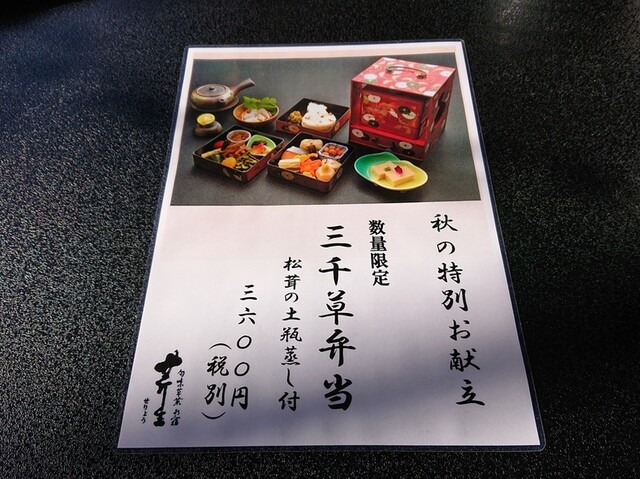 秋の特別お献立
数量限定
三千草弁当
松茸の土瓶蒸し付
三六〇〇円
（税別）
せりょう